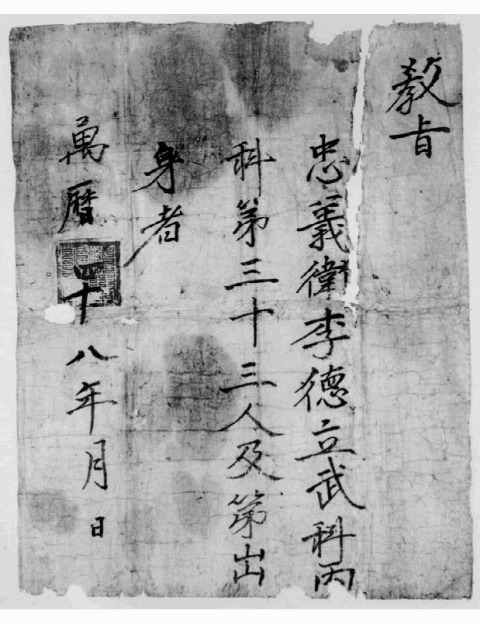 教旨
忠義衛李德立武科丙
科第三十三人及第出
身者
萬曆四十八年月日